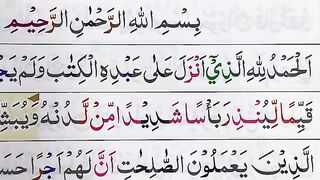 بِسْمِ اللهِ الرَّحْمٰنِ الرَّحِيْمِ
اَلْحَمْدُ لِلّٰهِ الَّذِيْٓ اَنْزَلَ عَلٰى عَبْدِهِ الْكِتٰبَ وَلَمْ يَج
قَيِّمًا لِّيُنْذِرَ بَاْسًا شَدِيْدًا مِّنْ لَّدُنْهُ وَيُبَشِّ
الَّذِيْنَ يَعْمَلُوْنَ الصّٰلِحٰتِ اَنَّ لَهُمْ اَجْرًا حَسَ